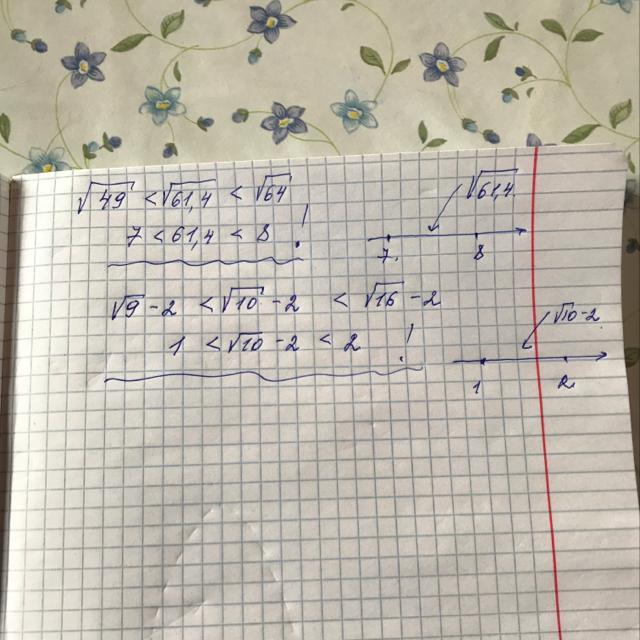 √49 < √61,4 < √64
7 < 61,4 < 8 !
√61,4
7. 8
√9 - 2 < √10 - 2 < √16 - 2
1 < √10 - 2 < 2 !
√10-2
1 2